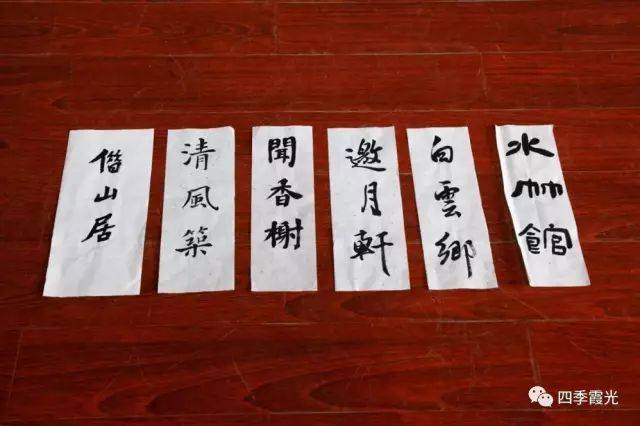 偕山居
清風築
聞香榭
邀月軒
白雲鄉
水竹館
四季霞光